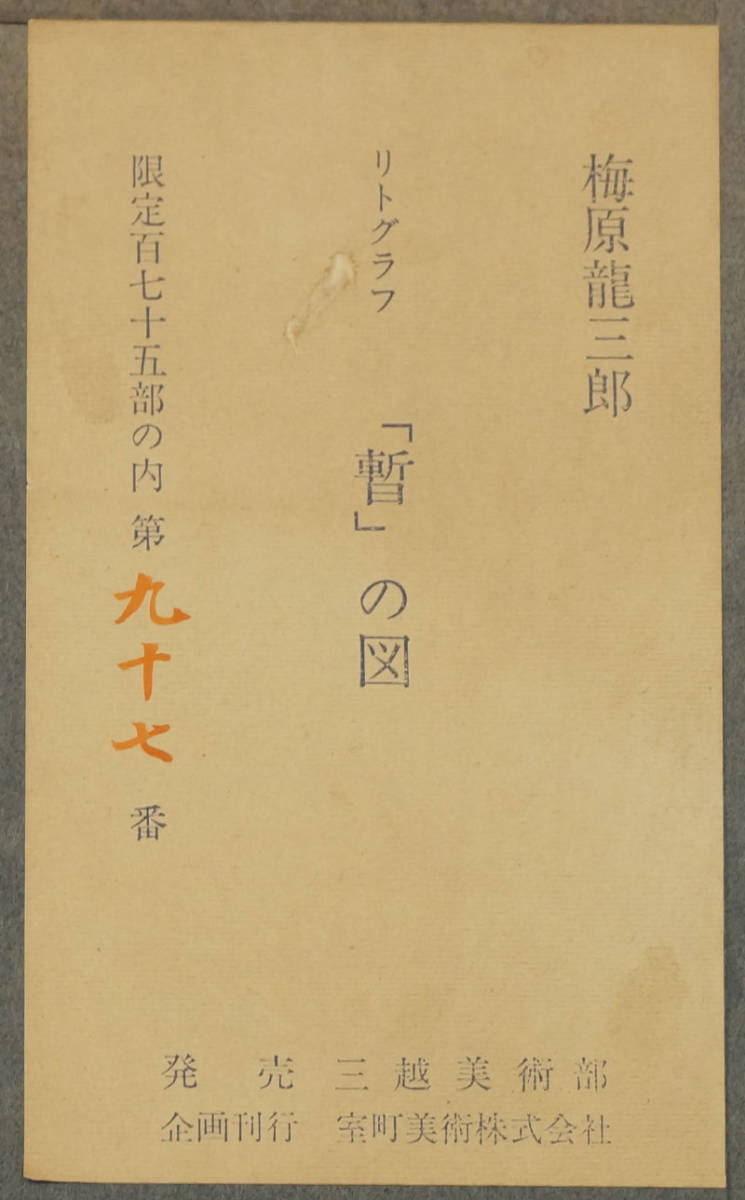 梅原龍三郎
リトグラフ 「暫」の図
限定百七十五部の内 第 九十七 番
発売 三越美術部
企画刊行 室町美術株式会社